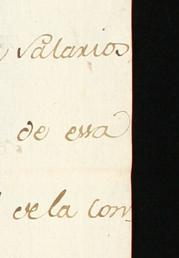 Salarios
de essa
de la con